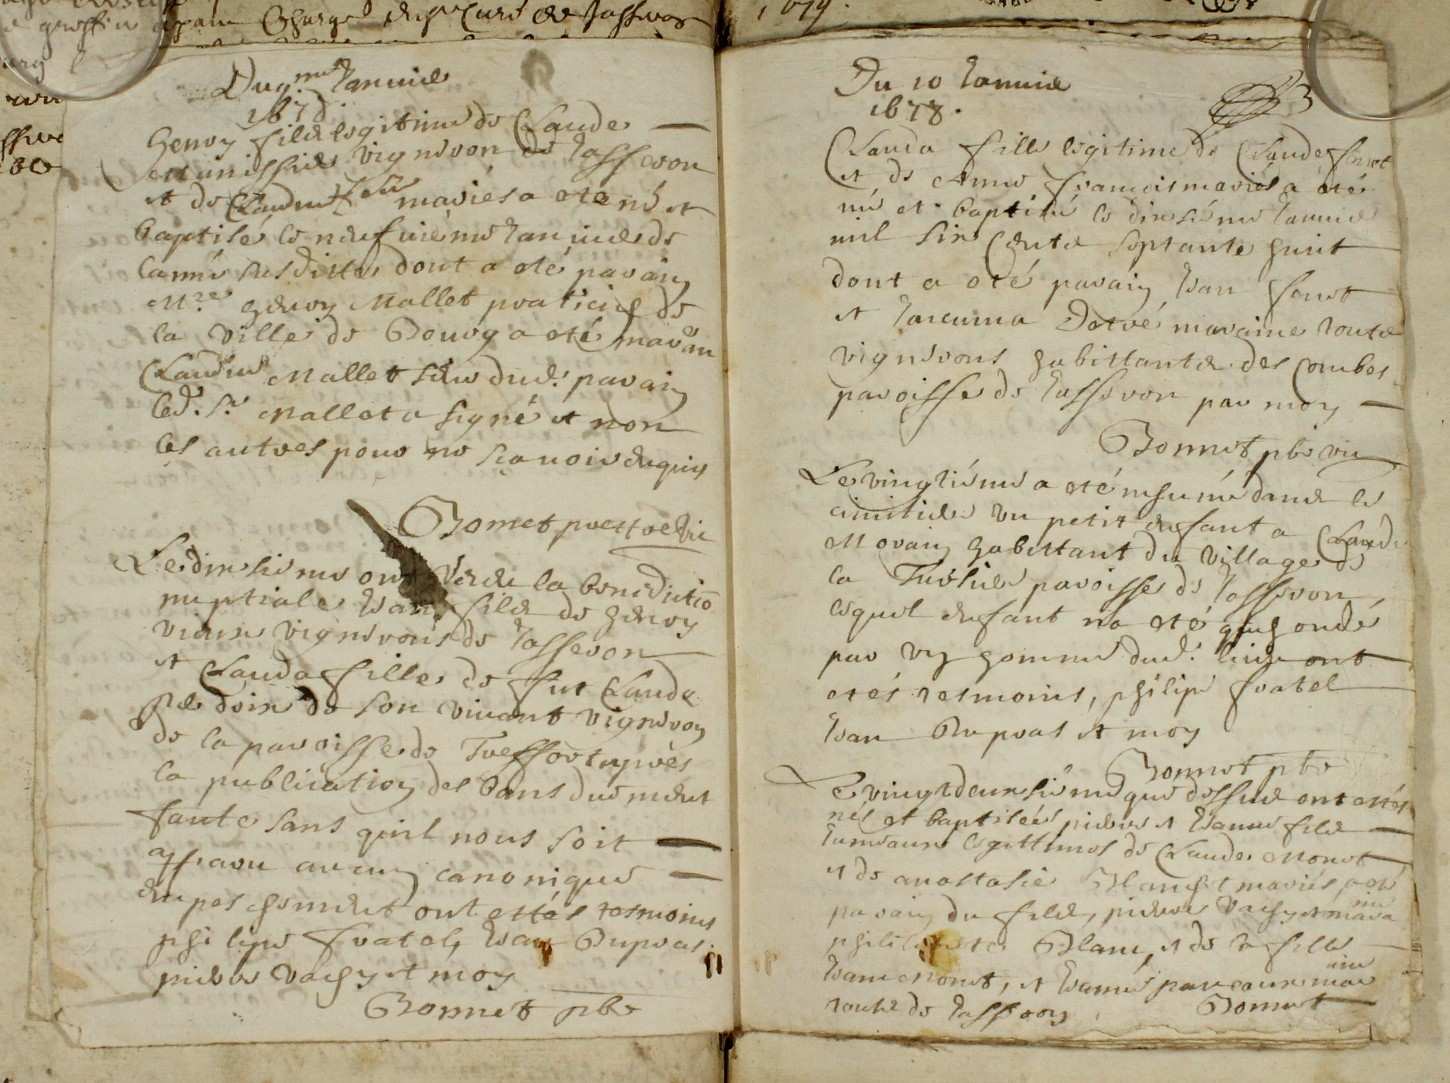 apair Charge Curé de Jasseron
1679.
Du 9.me Janvier
167
henry fils legitime de Claude
vigneron de Jasseron
et de Claudine mariés a eté né et
baptisé le neufviéme Janvier de
l'anné susditte dont a eté parain
M.re henry Mallet praticien de
la ville de Bourg a eté marain
Claudine Mallet seur dud. parain
led. Sr. Mallet a signé et non
les autres pour ne sçavoir enquis
Bonnet prestre vic
Le dixsiéme ont la benediction
nuptiale Jean fils de henry
vigneron de Jasseron
et Clauda fille de fut Claude
de son vivant vigneron
de la paroisse de Treffort apres
la publication des bans duement
faute sans qu'il nous soit
apparu aucun canonique
empeschement ont estés tesmoins
philipe fratel, Jean Dupras
pierre vachy et moy
Bonnet pbre
Du 10 Janvier
1678.
3
Clauda fille legitime de Claude furet
et de Anne francois mariés a eté
né et baptisé le dixsiéme Janvier
mil six cents septante huit
dont a eté parain Jean furet
et Jacuma maraine touts
vignerons habittants des Combes
paroisse de Jasseron par moy
Bonnet pbre vic
Le vingtiéme a eté inhumé dans le
cimitiere un petit enfant a Claude
Morain habittant du village de
la paroisse de Jasseron,
lequel enfant na eté que ondé
par un homme dud. lieu ont
etés tesmoins, philipe fratel
Jean Dupras et moy
Bonnet pbre
Le vingtdeuxsiéme que dessus ont estés
nés et baptisés pierre et Jeanne fils
jumeaux legittimes de Claude Monet
et de anastasie Blanchet mariés
parain du fils, pierre vachy et mara
ine
Blanc, et de la fille
Jean Monet, et Jeanne marai
ne
touts de Jasseron Bonnet